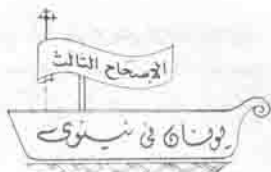 الإصحاح الثالث
يونان في نينوى